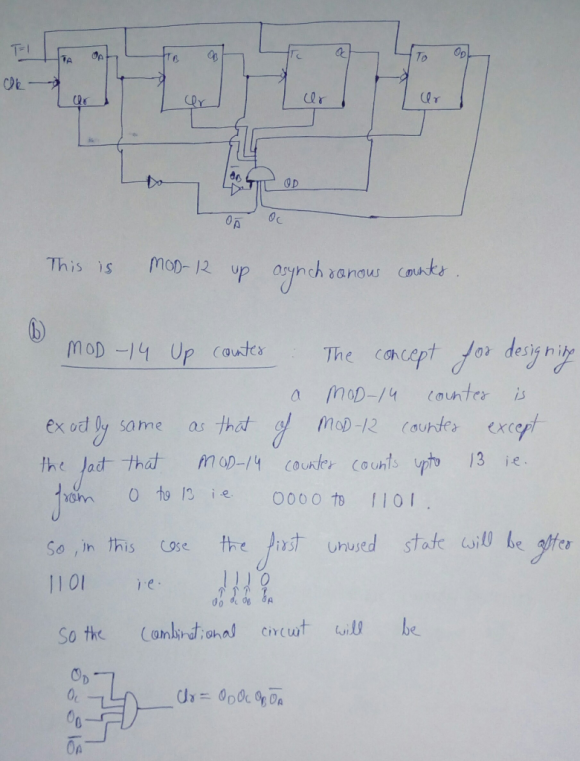 T=1
TA QA TB QB TC QC TD QD
Clk
Clr Clr Clr Clr
Q̅B QD
Q̅A QC
This is MOD-12 up asynchronous counter.
(b)
MOD-14 Up counter The concept for designing
a MOD-14 counter is
exactly same as that of MOD-12 counter except
the fact that MOD-14 counter counts upto 13 i.e.
from 0 to 13 i.e 0000 to 1101.
So, in this case the first unused state will be after
1101 i.e. 1110
QD QC QB QA
So the combinational circuit will be
QD
QC
QB
Q̅A
Clr = QD QC QB Q̅A